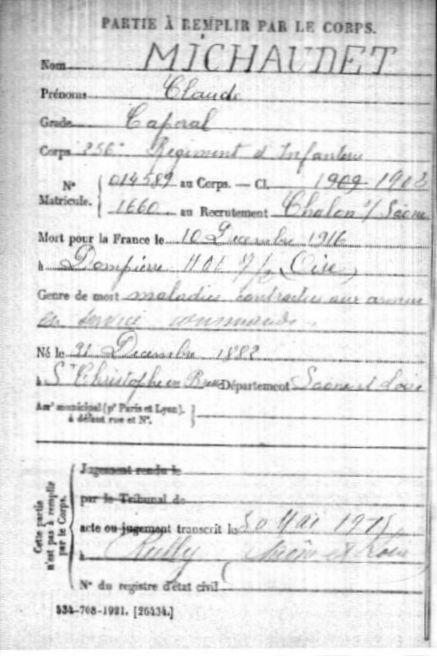 PARTIE À REMPLIR PAR LE CORPS.
Nom MICHAUDET
Prénoms Claude
Grade Caporal
Corps 256e Régiment d'Infanterie
No Matricule. { 014589 au Corps. — Cl. 1909 1902
1660 au Recrutement Chalon s/ Saône
Mort pour la France le 10 Décembre 1916
à Dompierre HOE (Oise)
Genre de mort maladie contractée aux armées
en service commandé
Né le 21 Décembre 1882
à St Christophe en Bresse Département Saône et Loire
Arrt municipal (pr Paris et Lyon), }
à défaut rue et No.
Cette partie n'est pas à remplir par le Corps.
Jugement rendu le
par le Tribunal de
acte ou jugement transcrit le 30 Mai 1917
à Rully Saône et Loire
No du registre d'état civil
534-708-1921. [26434.]